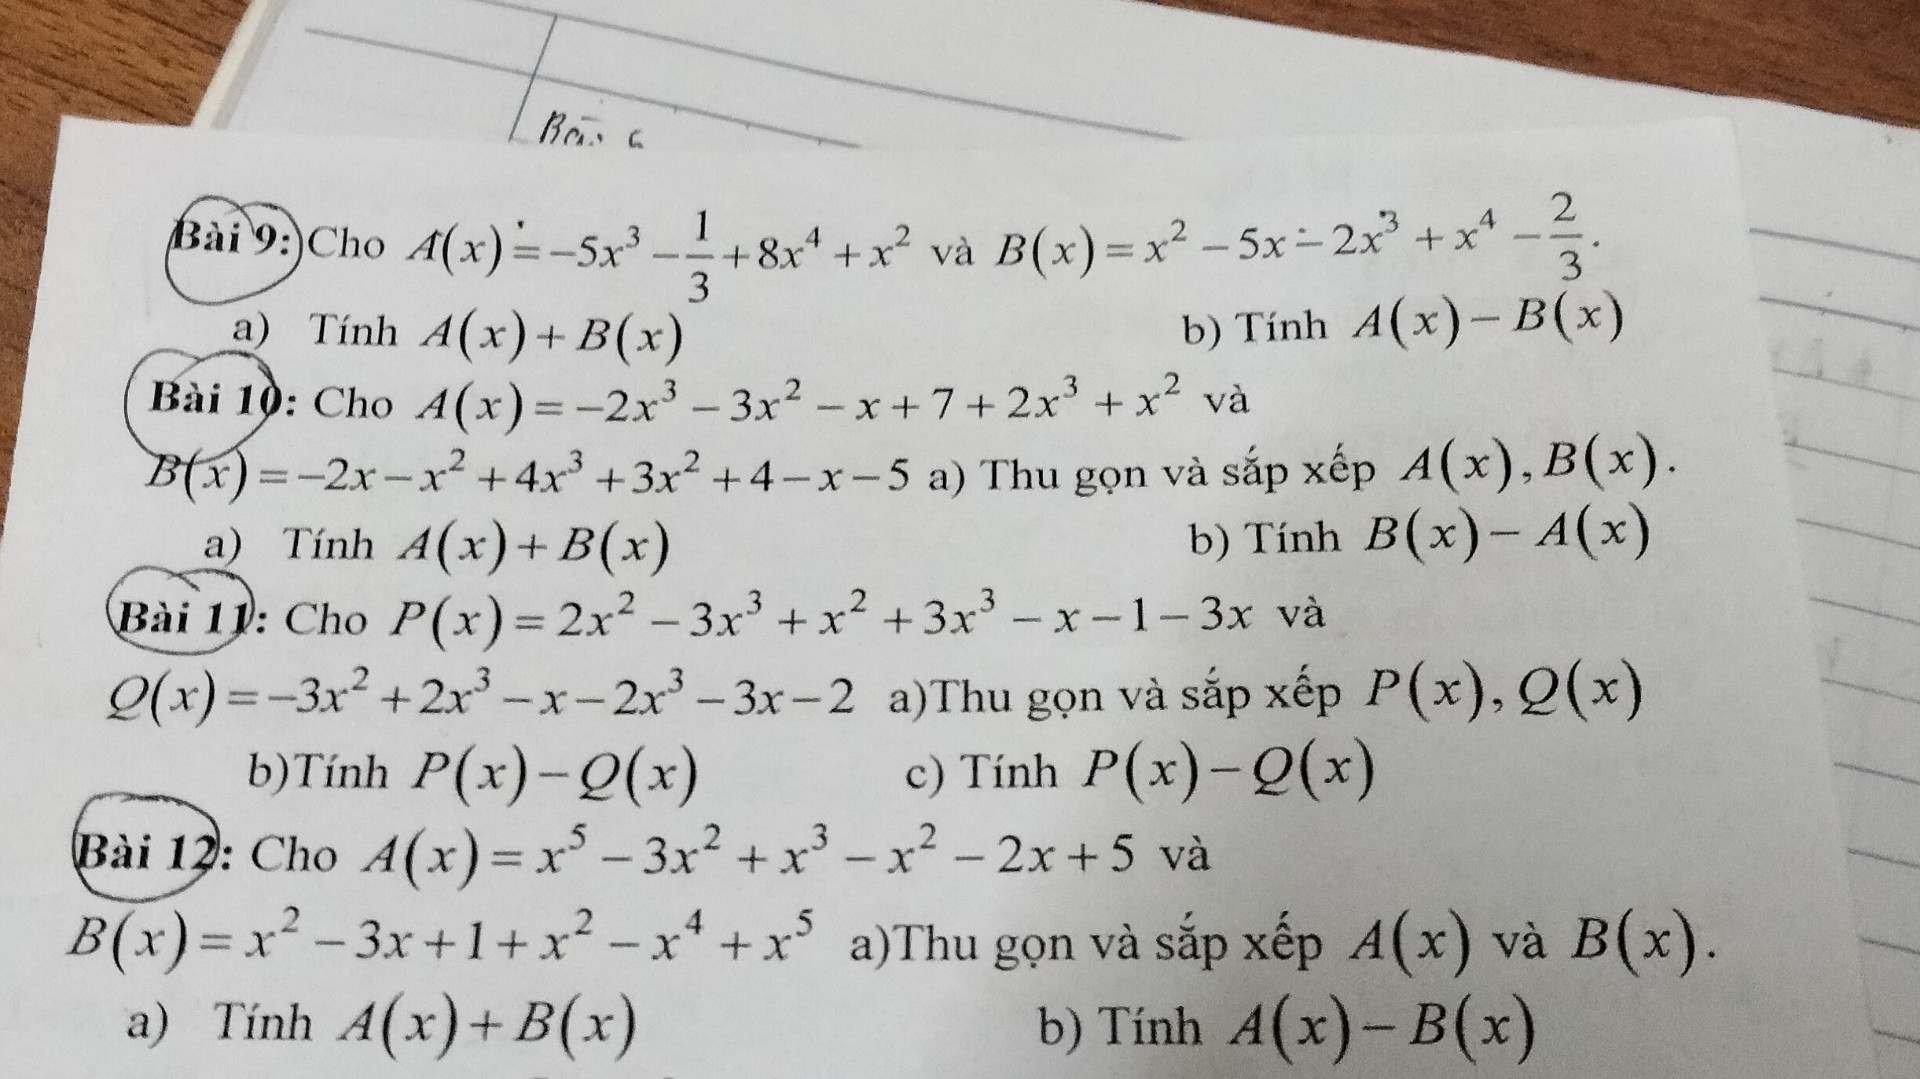 Bài 6
Bài 9: Cho A(x) = −5x³ − 1/3 + 8x⁴ + x² và B(x) = x² − 5x − 2x³ + x⁴ − 2/3.
a) Tính A(x) + B(x) b) Tính A(x) − B(x)
Bài 10: Cho A(x) = −2x³ − 3x² − x + 7 + 2x³ + x² và
B(x) = −2x − x² + 4x³ + 3x² + 4 − x − 5 a) Thu gọn và sắp xếp A(x), B(x).
a) Tính A(x) + B(x) b) Tính B(x) − A(x)
Bài 11: Cho P(x) = 2x² − 3x³ + x² + 3x³ − x − 1 − 3x và
Q(x) = −3x² + 2x³ − x − 2x³ − 3x − 2 a)Thu gọn và sắp xếp P(x), Q(x)
b)Tính P(x) − Q(x) c) Tính P(x) − Q(x)
Bài 12: Cho A(x) = x⁵ − 3x² + x³ − x² − 2x + 5 và
B(x) = x² − 3x + 1 + x² − x⁴ + x⁵ a)Thu gọn và sắp xếp A(x) và B(x).
a) Tính A(x) + B(x) b) Tính A(x) − B(x)